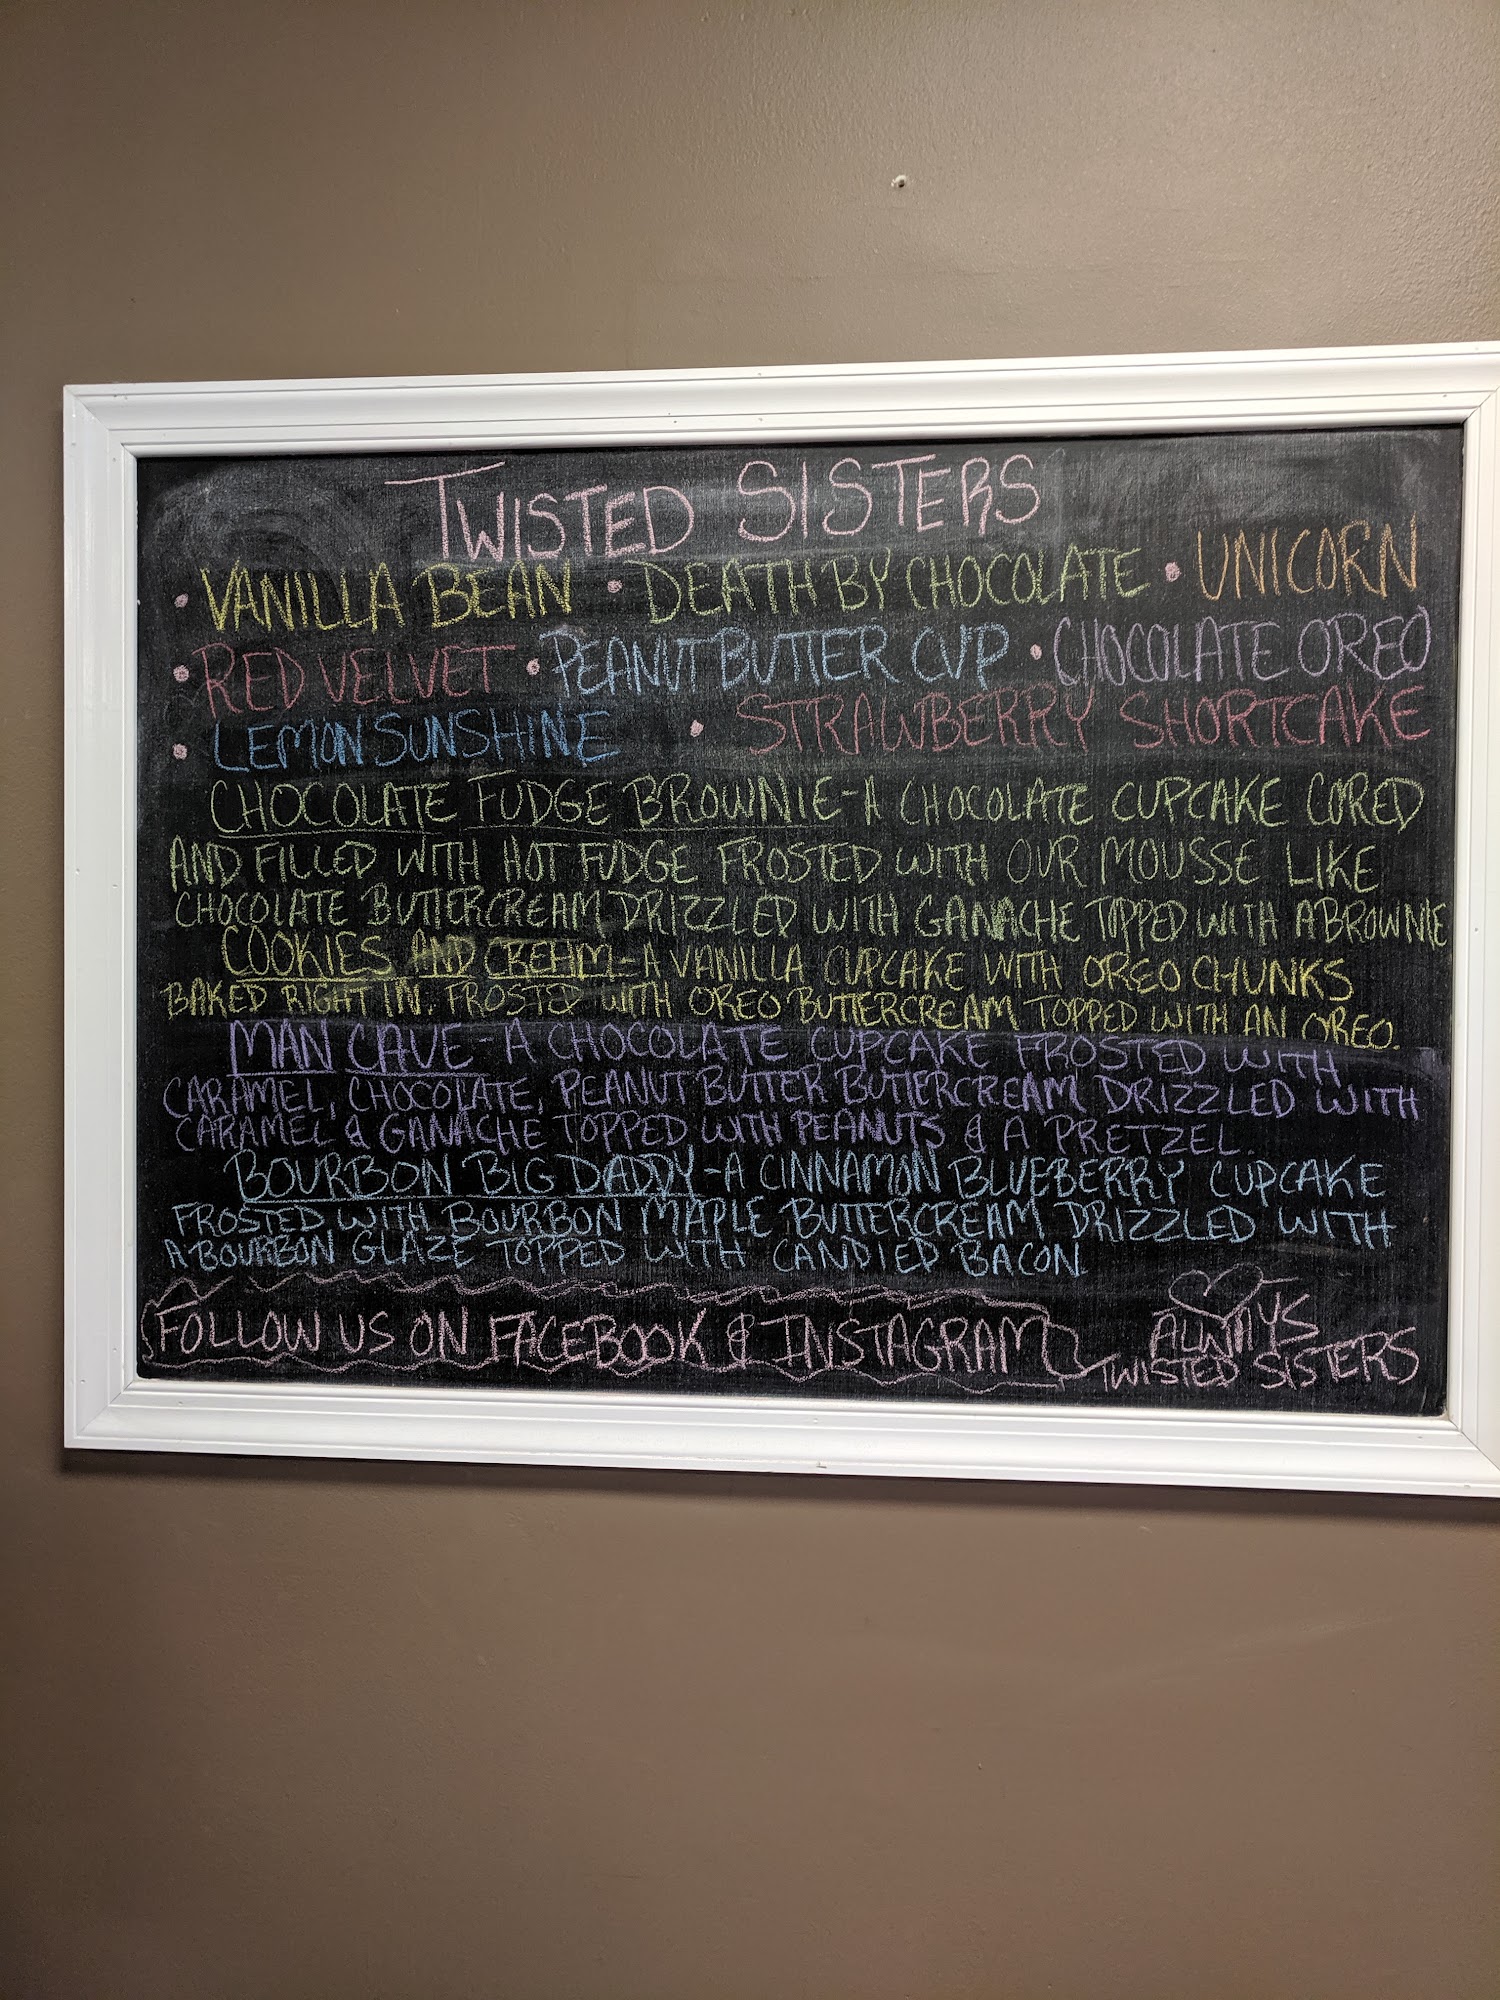 TWISTED SISTERS
• VANILLA BEAN • DEATH BY CHOCOLATE • UNICORN
• RED VELVET • PEANUT BUTTER CUP • CHOCOLATE OREO
• LEMON SUNSHINE • STRAWBERRY SHORTCAKE
CHOCOLATE FUDGE BROWNIE - A CHOCOLATE CUPCAKE CORED
AND FILLED WITH HOT FUDGE FROSTED WITH OUR MOUSSE LIKE
CHOCOLATE BUTTERCREAM, DRIZZLED WITH GANACHE TOPPED WITH A BROWNIE
COOKIES AND CREAM - A VANILLA CUPCAKE WITH OREO CHUNKS
BAKED RIGHT IN. FROSTED WITH OREO BUTTERCREAM TOPPED WITH AN OREO.
MAN CAVE - A CHOCOLATE CUPCAKE FROSTED WITH
CARAMEL, CHOCOLATE, PEANUT BUTTER BUTTERCREAM DRIZZLED WITH
CARAMEL & GANACHE TOPPED WITH PEANUTS & A PRETZEL.
BOURBON BIG DADDY - A CINNAMON BLUEBERRY CUPCAKE
FROSTED WITH BOURBON MAPLE BUTTERCREAM DRIZZLED WITH
A BOURBON GLAZE TOPPED WITH CANDIED BACON.
FOLLOW US ON FACEBOOK & INSTAGRAM
ALWAYS
TWISTED SISTERS